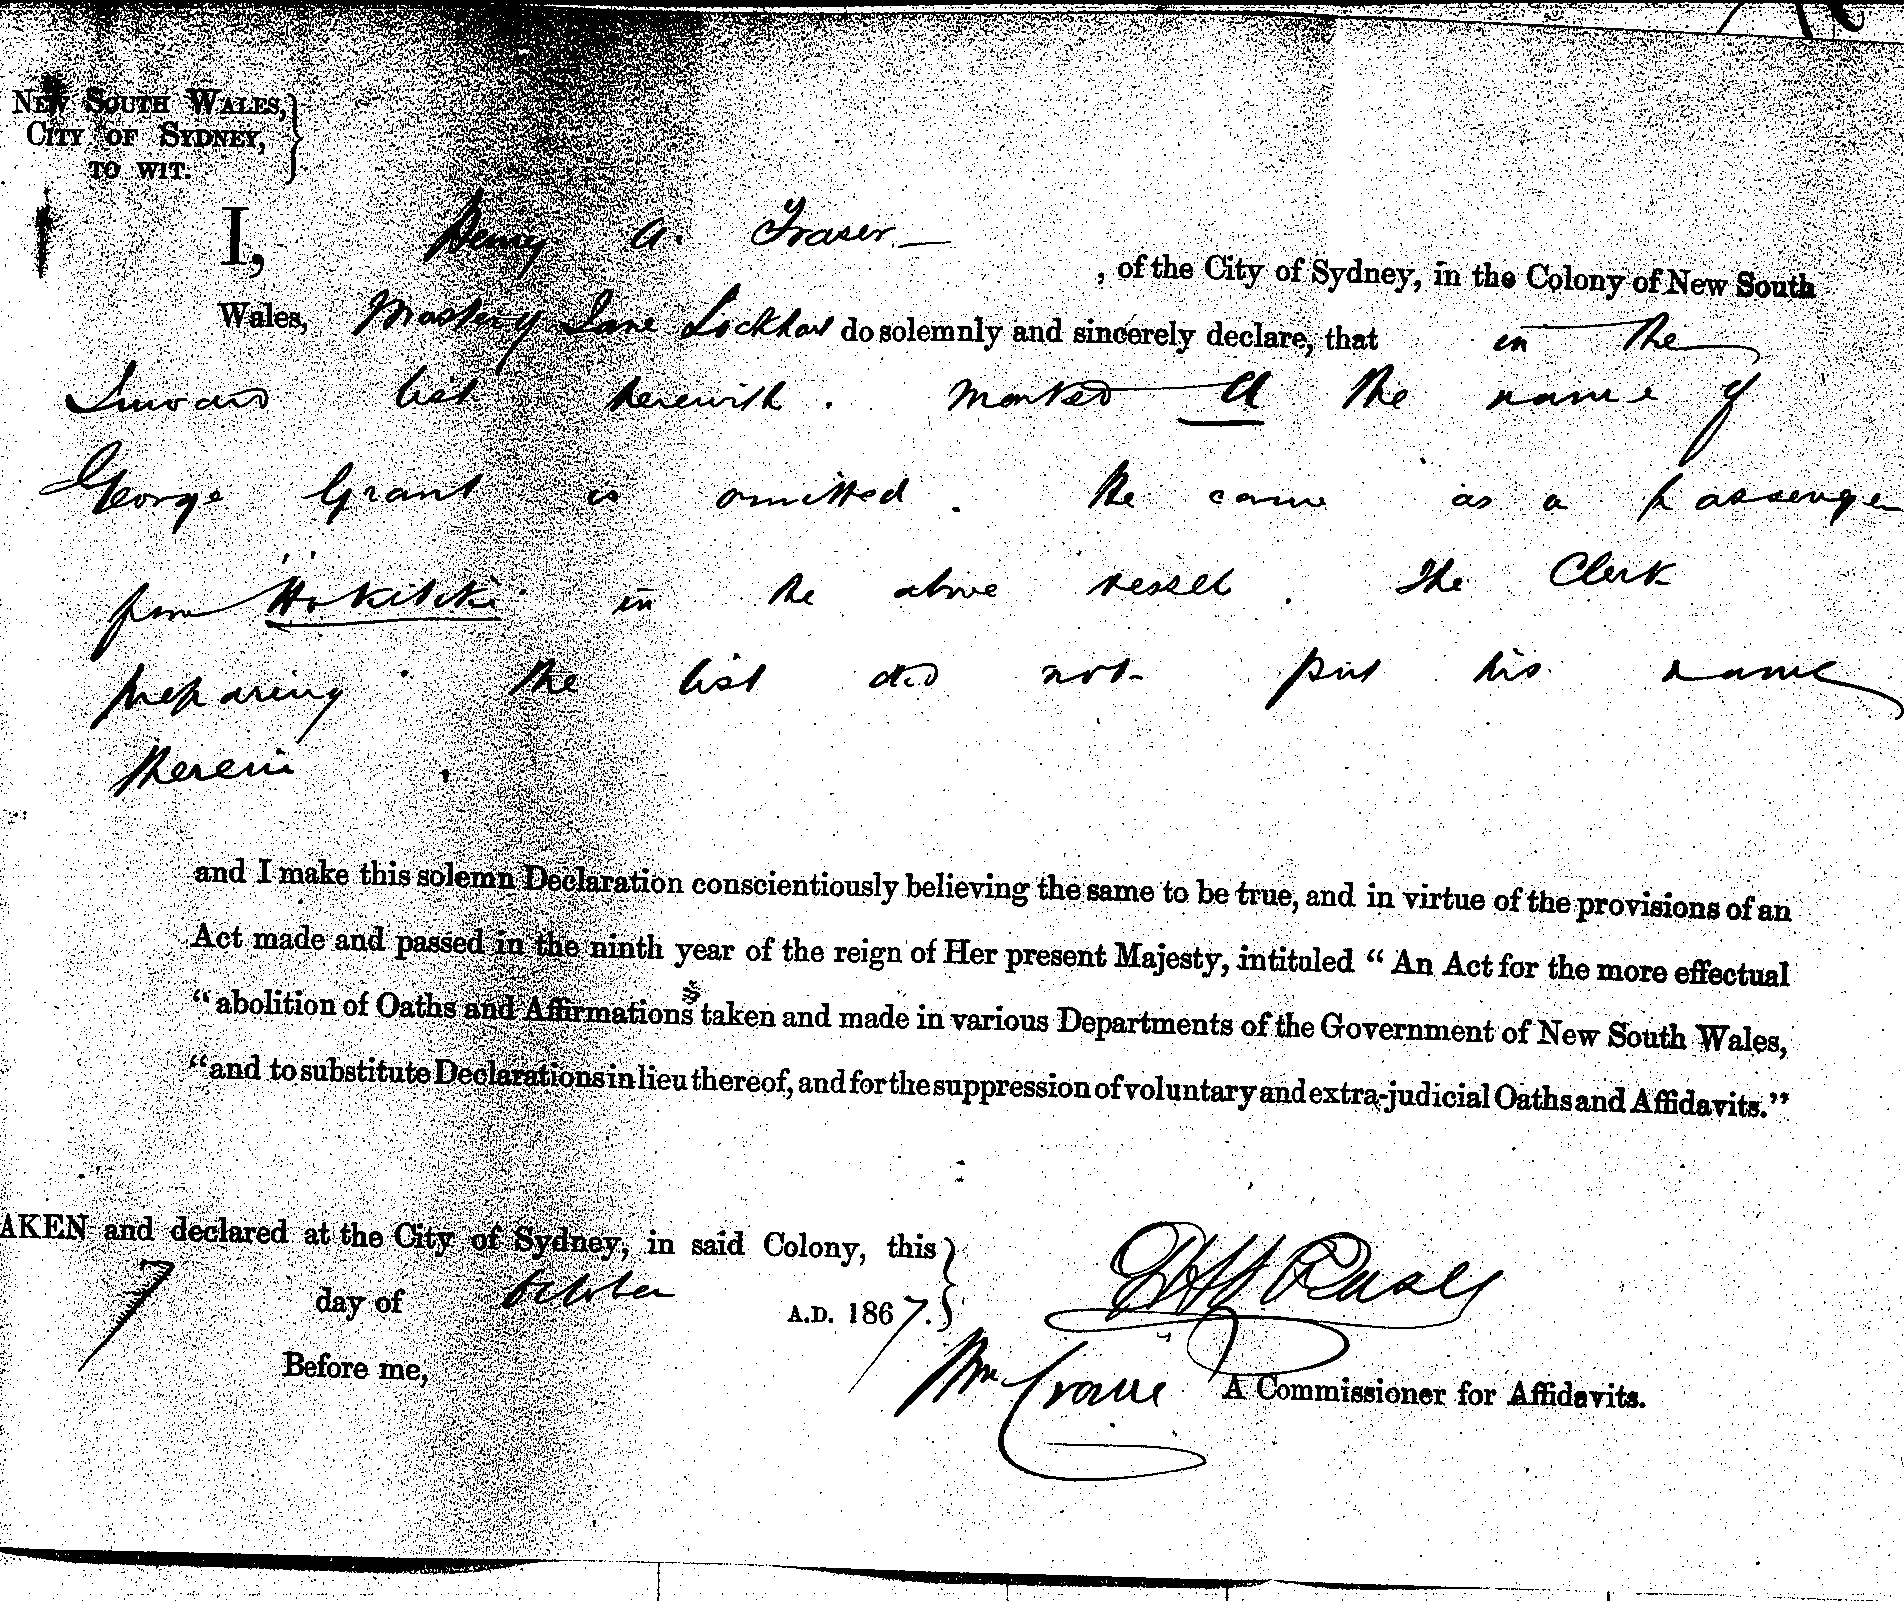 NEW SOUTH WALES,
CITY OF SYDNEY,
TO WIT.
I, Henry A. Fraser
, of the City of Sydney, in the Colony of New South
Wales, Master of Jane Lockhart do solemnly and sincerely declare, that in the
Inward list herewith. Marked A the name of
George Grant is omitted. He came as a passenger
from "Hokitiki" in the above vessel. The Clerk
preparing the list did not put his name
therein.
and I make this solemn Declaration conscientiously believing the same to be true, and in virtue of the provisions of an
Act made and passed in the ninth year of the reign of Her present Majesty, intituled " An Act for the more effectual
" abolition of Oaths and Affirmations taken and made in various Departments of the Government of New South Wales,
" and to substitute Declarations in lieu thereof, and for the suppression of voluntary and extra-judicial Oaths and Affidavits."
AKEN and declared at the City of Sydney, in said Colony, this
7 day of October A.D. 1867.
Before me,
Wm Crane A Commissioner for Affidavits.